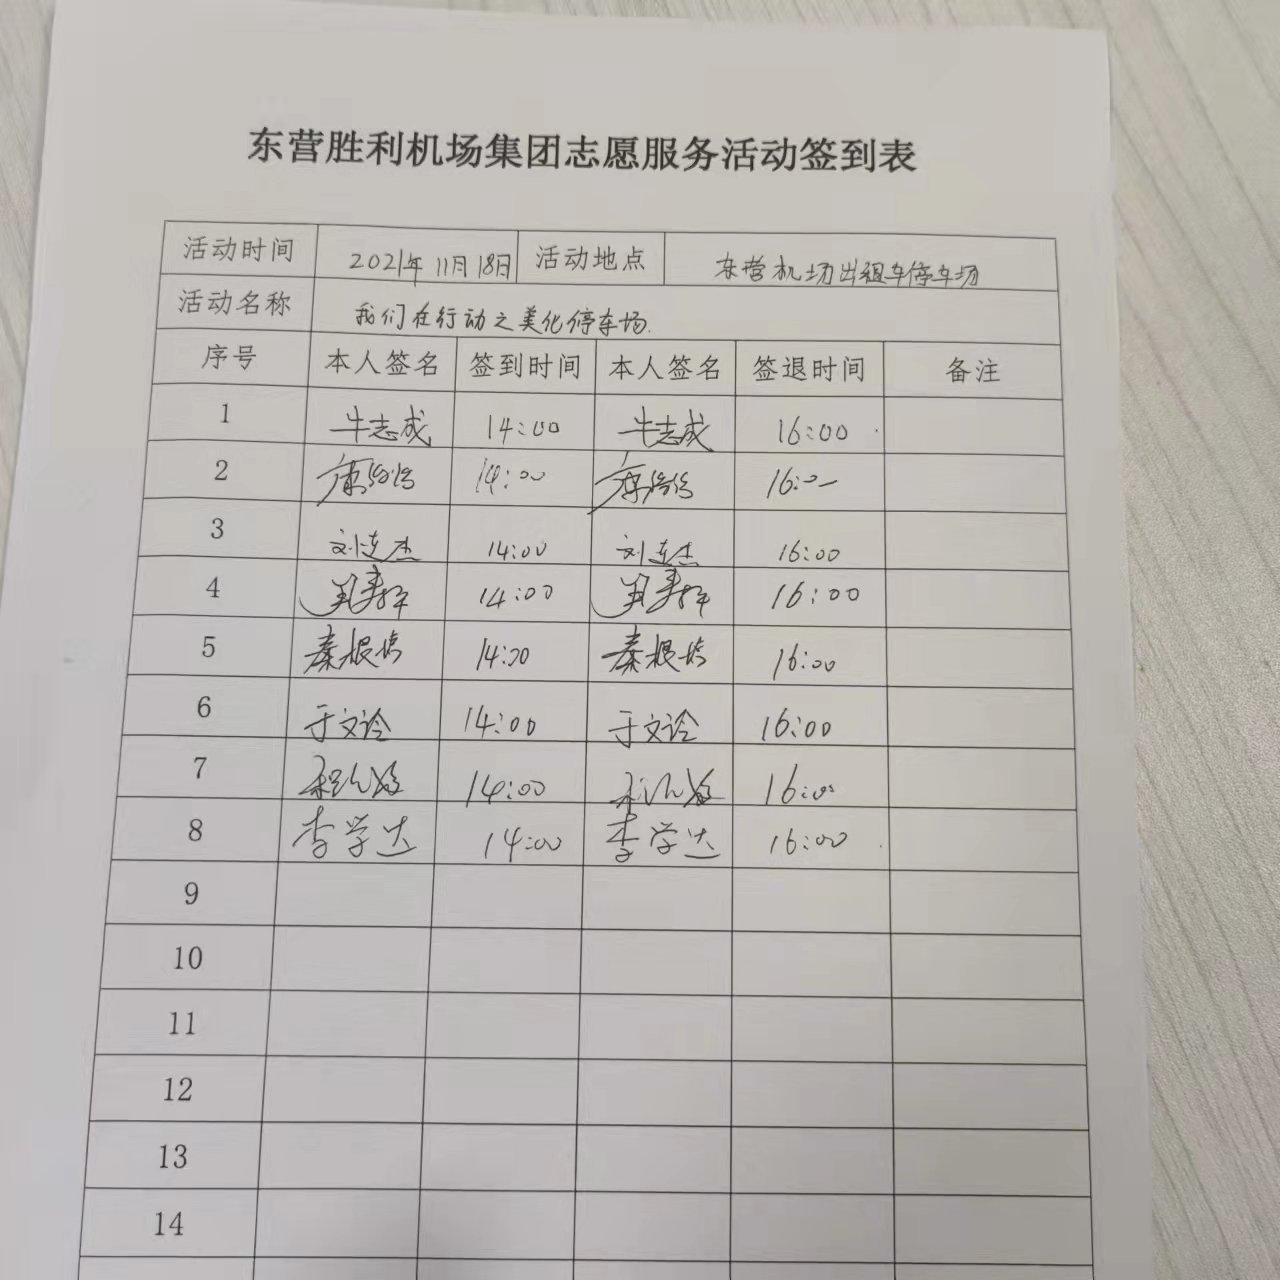 东营胜利机场集团志愿服务活动签到表
活动时间 2021年11月18日 活动地点 东营机场出租车停车场
活动名称 我们在行动之美化停车场.
序号 本人签名 签到时间 本人签名 签退时间 备注
1 牛志成 14:00 牛志成 16:00
2 14:00 16:00
3 刘连杰 14:00 刘连杰 16:00
4 14:00 16:00
5 秦根培 14:00 秦根培 16:00
6 于文论 14:00 于文论 16:00
7 14:00 16:00
8 李学达 14:00 李学达 16:00
9
10
11
12
13
14